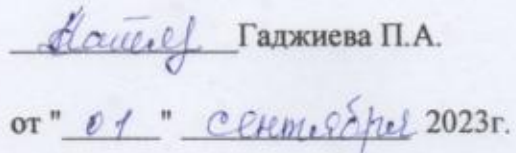 Гаджиева П.А.
от "01" сентября 2023г.